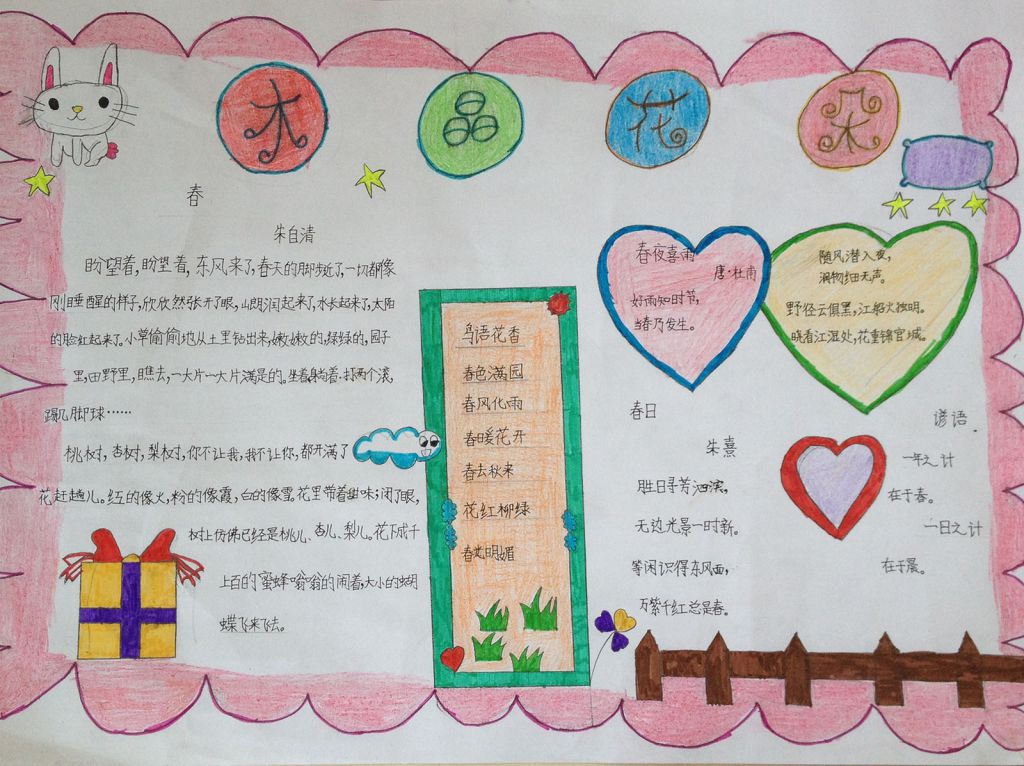 木 品 花 朵
春
朱自清
盼望着,盼望着,东风来了,春天的脚步近了,一切都像
刚睡醒的样子,欣欣然张开了眼,山朗润起来了,水长起来了,太阳
的脸红起来了。小草偷偷地从土里钻出来,嫩嫩的,绿绿的,园子
里,田野里,瞧去,一大片一大片满是的。坐着,躺着,打两个滚,
踢几脚球……
桃树,杏树,梨树,你不让我,我不让你,都开满了
花赶趟儿。红的像火,粉的像霞,白的像雪,花里带着甜味;闭了眼,
树上仿佛已经是桃儿、杏儿、梨儿。花下成千
上百的蜜蜂嗡嗡的闹着,大小的蝴
蝶飞来飞去。
鸟语花香
春色满园
春风化雨
春暖花开
春去秋来
花红柳绿
春光明媚
春夜喜雨
唐·杜甫
好雨知时节,
当春乃发生。
随风潜入夜,
润物细无声。
野径云俱黑,江船火独明。
晓看江湿处,花重锦官城。
春日
朱熹
胜日寻芳泗滨,
无边光景一时新。
等闲识得东风面,
万紫千红总是春。
谚语.
一年之计
在于春。
一日之计
在于晨。